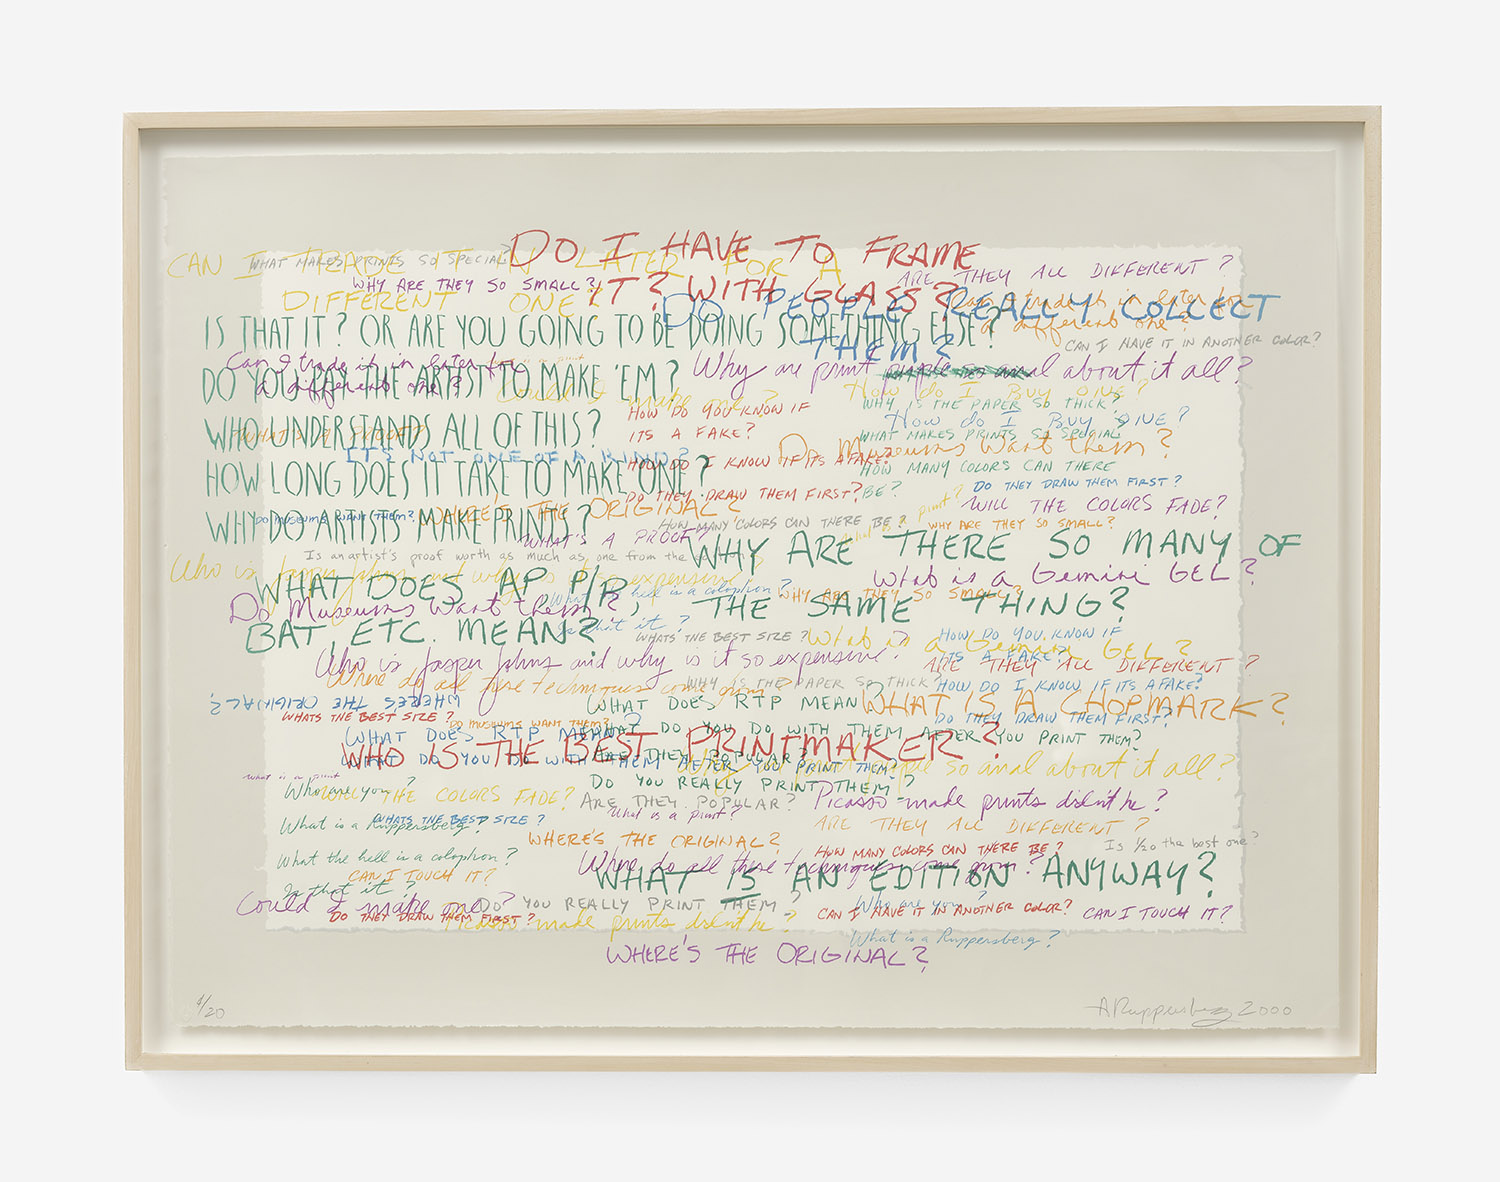 DO I HAVE TO FRAME
IT? WITH GLASS?
CAN I TRADE IT IN LATER FOR A
DIFFERENT ONE?
WHAT MAKES PRINTS SO SPECIAL?
WHY ARE THEY SO SMALL?
ARE THEY ALL DIFFERENT?
DO PEOPLE REALLY COLLECT
THEM?
Can I trade it in later for
a different one?
IS THAT IT? OR ARE YOU GOING TO BE DOING SOMETHING ELSE?
CAN I HAVE IT IN ANOTHER COLOR?
Can I trade it in later for
a different one?
What is a print
DO YOU PAY THE ARTIST TO MAKE 'EM?
Why are print people so anal about it all?
Could I make one?
How do I BUY ONE?
WHY IS THE PAPER SO THICK?
HOW DO YOU KNOW IF
ITS A FAKE?
How do I BUY ONE?
WHO UNDERSTANDS ALL OF THIS?
WHAT'S A PROOF?
WHAT MAKES PRINTS SO SPECIAL
Do Museums Want them?
IT'S NOT ONE OF A KIND?
HOW DO I KNOW IF ITS A FAKE?
HOW MANY COLORS CAN THERE
BE?
HOW LONG DOES IT TAKE TO MAKE ONE?
DO THEY DRAW THEM FIRST?
DO THEY DRAW THEM FIRST?
WHERE'S THE ORIGINAL?
WILL THE COLORS FADE?
What is a print?
WHY DO ARTISTS MAKE PRINTS?
DO MUSEUMS WANT THEM?
HOW MANY COLORS CAN THERE BE?
WHY ARE THEY SO SMALL?
WHAT'S A PROOF?
WHY ARE THERE SO MANY OF
THE SAME THING?
Is an artist's proof worth as much as one from the edition?
Who is Jasper Johns and why is it so expensive
What is a Gemini GEL?
WHAT DOES AP, P/P,
BAT, ETC. MEAN?
What the hell is a colophon?
WHY ARE THEY SO SMALL?
Do Museums Want them?
Is that it?
WHATS THE BEST SIZE?
What is a Gemini GEL?
HOW DO YOU KNOW IF
IS A FAKE?
Who is Jasper Johns and why is it so expensive?
ARE THEY ALL DIFFERENT?
Where do all these techniques come from?
WHY IS THE PAPER SO THICK?
HOW DO I KNOW IF ITS A FAKE?
WHERE'S THE ORIGINAL?
WHAT DOES RTP MEAN
WHAT IS A CHOPMARK?
WHATS THE BEST SIZE?
DO MUSEUMS WANT THEM?
DO THEY DRAW THEM FIRST?
WHAT DOES RTP MEAN?
WHAT DO YOU DO WITH THEM AFTER YOU PRINT THEM?
WHO IS THE BEST PRINTMAKER?
ARE THEY POPULAR?
WHAT DO YOU DO WITH THEM AFTER YOU PRINT THEM?
Why are print people so anal about it all?
What is a print
Who are you?
DO YOU REALLY PRINT THEM?
WILL THE COLORS FADE?
ARE THEY POPULAR?
Picasso made prints didn't he?
What is a print?
What is a Ruppersberg?
WHATS THE BEST SIZE?
ARE THEY ALL DIFFERENT?
WHERE'S THE ORIGINAL?
HOW MANY COLORS CAN THERE BE?
Is 1/20 the best one?
What the hell is a colophon?
Where do all these techniques come from?
CAN I TOUCH IT?
WHAT IS AN EDITION ANYWAY?
Is that it?
Could I make one?
DO YOU REALLY PRINT THEM?
Who are you?
DO THEY DRAW THEM FIRST?
Picasso made prints didn't he?
CAN I HAVE IT IN ANOTHER COLOR?
CAN I TOUCH IT?
What is a Ruppersberg?
WHERE'S THE ORIGINAL?
4/20
A Ruppersberg 2000